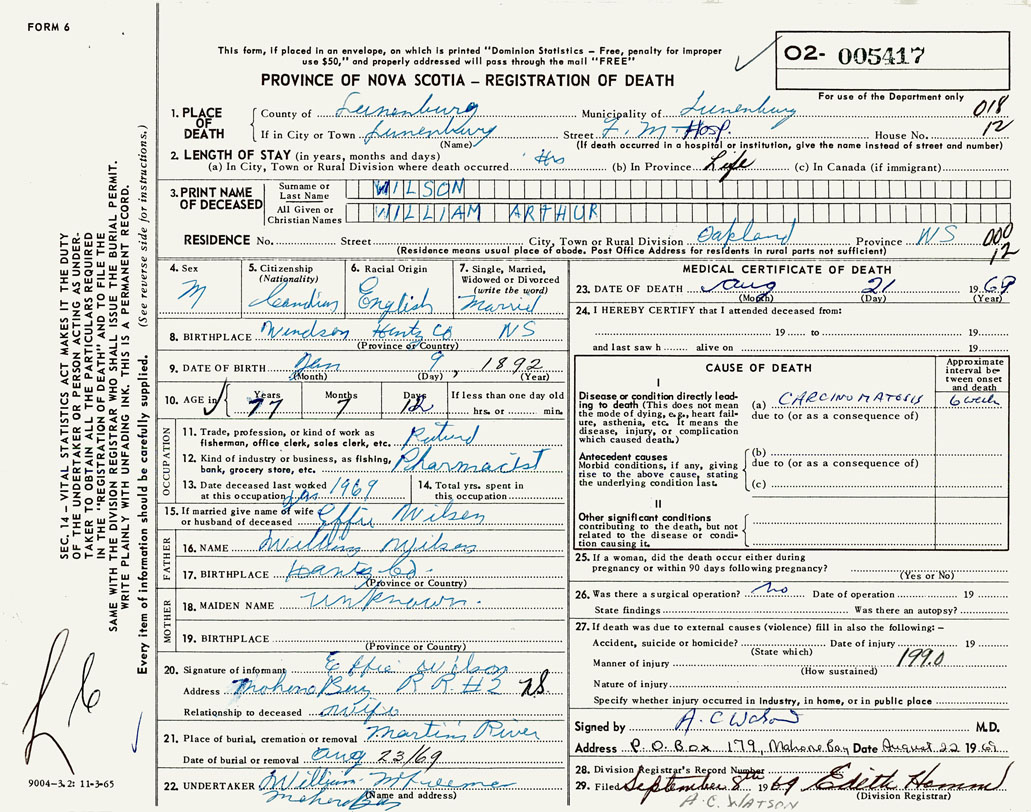 FORM 6
This form, if placed in an envelope, on which is printed "Dominion Statistics – Free, penalty for improper
use $50," and properly addressed will pass through the mail "FREE"
O2- 005417
PROVINCE OF NOVA SCOTIA – REGISTRATION OF DEATH
For use of the Department only
1. PLACE OF DEATH
County of Lunenburg Municipality of Lunenburg 018
If in City or Town Lunenburg Street F. M. Hosp. House No. 12
(Name) (If death occurred in a hospital or institution, give the name instead of street and number)
2. LENGTH OF STAY (in years, months and days)
(a) In City, Town or Rural Division where death occurred Hrs (b) In Province Life (c) In Canada (if immigrant)
3. PRINT NAME OF DECEASED
Surname or Last Name WILSON
All Given or Christian Names WILLIAM ARTHUR
RESIDENCE No. Street City, Town or Rural Division Oakland Province NS 000
(Residence means usual place of abode. Post Office Address for residents in rural parts not sufficient) 12
4. Sex M
5. Citizenship (Nationality) Canadian
6. Racial Origin English
7. Single, Married, Widowed or Divorced (write the word) Married
8. BIRTHPLACE Windsor Hants Co NS
(Province or Country)
9. DATE OF BIRTH Jan 9, 1892
(Month) (Day) (Year)
10. AGE in Years 77 Months 7 Days 12 If less than one day old hrs. or min.
OCCUPATION
11. Trade, profession, or kind of work as fisherman, office clerk, sales clerk, etc. Retired
12. Kind of industry or business, as fishing, bank, grocery store, etc. Pharmacist
13. Date deceased last worked at this occupation Jan 1969
14. Total yrs. spent in this occupation
15. If married give name of wife or husband of deceased Effie Wilson
FATHER
16. NAME William Wilson
17. BIRTHPLACE Hants Co.
(Province or Country)
MOTHER
18. MAIDEN NAME Unknown.
19. BIRTHPLACE
(Province or Country)
20. Signature of informant Effie Wilson
Address Mahone Bay R R #2 N.S.
Relationship to deceased Wife
21. Place of burial, cremation or removal Martins River
Date of burial or removal Aug 23/69
22. UNDERTAKER William
Mahone Bay
(Name and address)
MEDICAL CERTIFICATE OF DEATH
23. DATE OF DEATH Aug 21 1969
(Month) (Day) (Year)
24. I HEREBY CERTIFY that I attended deceased from:
19 to 19
and last saw h alive on 19
CAUSE OF DEATH
Approximate interval between onset and death
I
Disease or condition directly leading to death (This does not mean the mode of dying, e.g., heart failure, asthenia, etc. It means the disease, injury, or complication which caused death.)
(a) CARCINOMATOSIS 6 weeks
due to (or as a consequence of)
Antecedent causes
Morbid conditions, if any, giving rise to the above cause, stating the underlying condition last.
(b)
due to (or as a consequence of)
(c)
II
Other significant conditions contributing to the death, but not related to the disease or condition causing it.
25. If a woman, did the death occur either during
pregnancy or within 90 days following pregnancy?
(Yes or No)
26. Was there a surgical operation? no Date of operation 19
State findings Was there an autopsy?
27. If death was due to external causes (violence) fill in also the following: –
Accident, suicide or homicide? Date of injury 19
(State which)
Manner of injury 199.0
(How sustained)
Nature of injury
Specify whether injury occurred in Industry, in home, or in public place
Signed by A. C. Watson M.D.
Address P.O. Box 179, Mahone Bay Date August 22 1969
28. Division Registrar's Record Number
29. Filed September 8th 1969 Edith
(Division Registrar)
A.C. WATSON
SEC. 14 – VITAL STATISTICS ACT MAKES IT THE DUTY
OF THE UNDERTAKER OR PERSON ACTING AS UNDER-
TAKER TO OBTAIN ALL THE PARTICULARS REQUIRED
IN THE "REGISTRATION OF DEATH" AND TO FILE THE
SAME WITH THE DIVISION REGISTRAR WHO SHALL ISSUE THE BURIAL PERMIT.
WRITE PLAINLY WITH UNFADING INK. THIS IS A PERMANENT RECORD.
Every item of information should be carefully supplied. (See reverse side for instructions.)
9004-3.2: 11-3-65